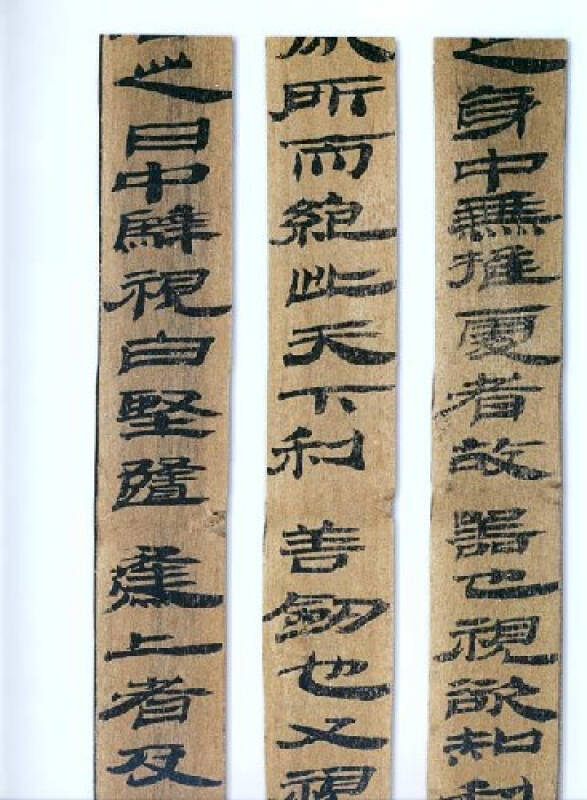 之身中無推處者故器也視欲知利
分所而絕此天下利善劍也又視
之日中騂視白堅隨上者及